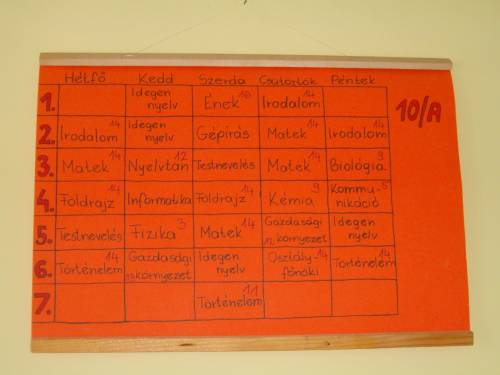 Hétfő Kedd Szerda Csütörtök Péntek
10/A
1. Idegen nyelv Ének 10 Irodalom 14
2. Irodalom 14 Idegen nyelv Gépírás Matek 14 Irodalom 14
3. Matek 14 Nyelvtan 12 Testnevelés Matek 14 Biológia 9
4. Földrajz 14 Informatika Földrajz 14 Kémia 9 Kommu-nikáció 5
5. Testnevelés Fizika 3 Matek 14 Gazdasági 12. környezet Idegen nyelv
6. Történelem 14 Gazdasági környezet Idegen nyelv Osztály-főnöki 14 Történelem 14
7. Történelem 11